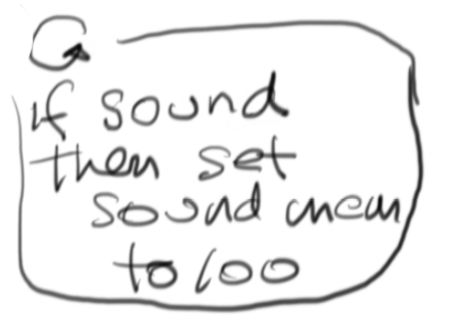 if sound
then set
sound mean
to 100